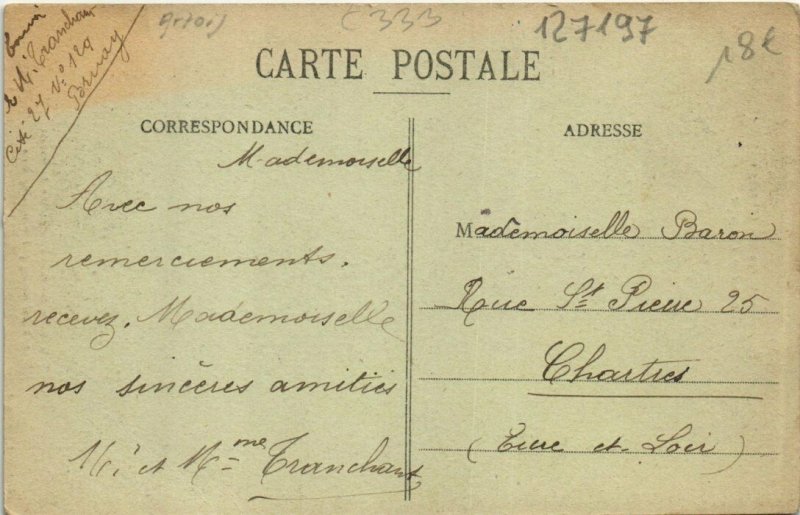 127197
18€
C333
CARTE POSTALE
CORRESPONDANCE
Mademoiselle
Avec nos
remerciements.
recevez, Mademoiselle
nos sincères amitiés
Mr et Mme Tranchant
ADRESSE
Mademoiselle Baron
Rue St Pierre 25
Chartres
(Eure et Loir)
M. Tranchant
Cité 27 No 129